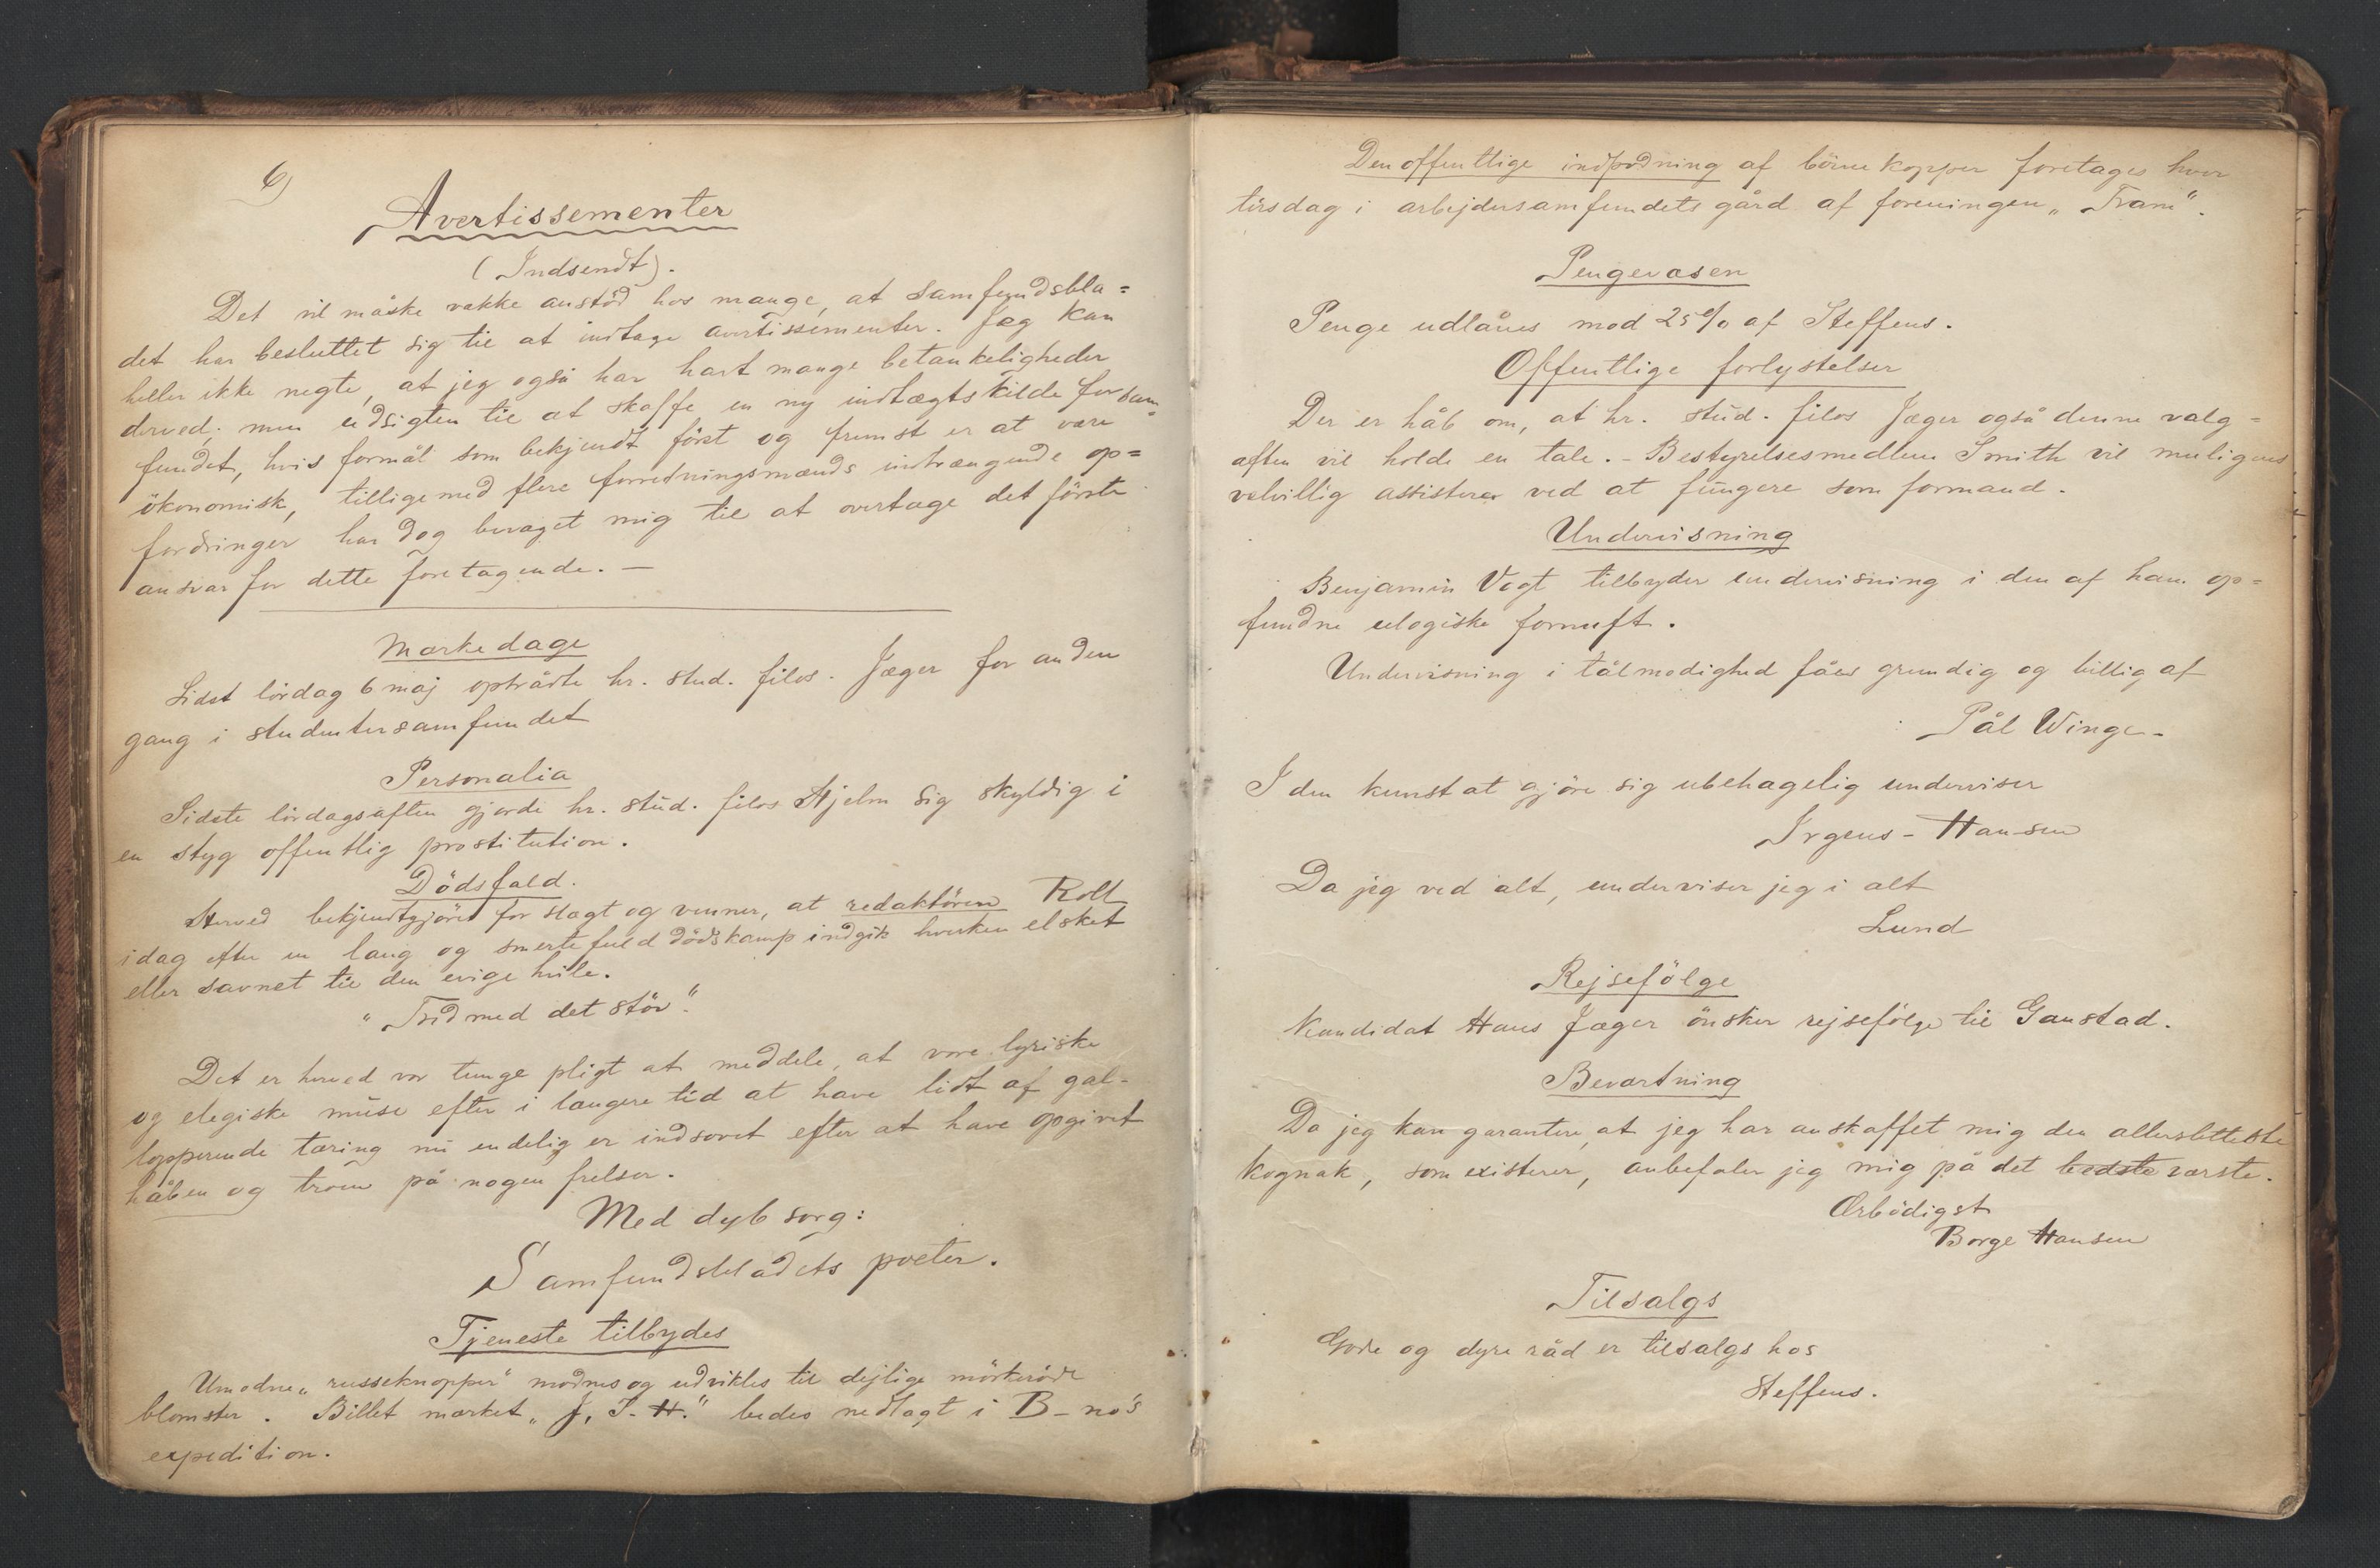 6)
Avertissementer
(Indsendt).
Det vil måske vække anstöd hos mange, at samfundsbla=
det har besluttet sig til at indtage avertissementer. Jeg kan
heller ikke negte, at jeg også har havt mange betænkeligheder
derved; men udsigten til at skaffe en ny indtægtskilde for sam=
fundet, hvis formål som bekjendt först og fremst er at være
ökonomisk, tilligemed flere forretningsmænds indtrængende op=
fordringer har dog bevæget mig til at overtage det förste
ansvar for dette foretagende. —
Mærkedage
Sidst lördag 6 maj optrådte hr. stud. filos. Jæger for anden
gang i studentersamfundet
Personalia
Sidste lördagsaften gjorde hr. stud. filos Hjelm sig skyldig i
en styg offentlig prostitution.
Dödsfald.
Herved bekjendtgjöres for slægt og venner, at redaktören Roll
idag efter en lang og smertefuld dödskamp indgik hverken elsket
eller savnet til den evige hvile.
"Träd med det stöv".
Det er herved vor tunge pligt at meddele, at vore lyriske
og elegiske muse efter i længere tid at have lidt af gal-
lopperende tæring nu endelig er indsovet efter at have opgivet
håben og troen på nogen frelser.
Med dyb sorg:
Samfundsbladets poeter.
Tjeneste tilbydes
Umodne „russeknopper" modnes og udvikles til dejlige mörkeröde
blomster. Billet mærket „J, T. H." bedes nedlagt i B-no's
expedition.
Den offentlige indpodning af börnekopper foretages hver
tirsdag i arbejdersamfundets gård af foreningen „Fram".
Pengevæsen
Penge udlånes mod 25% af Steffens.
Offentlige forlystelser
Der er håb om, at hr. stud. filos Jæger også denne valg=
aften vil holde en tale. - Bestyrelsesmedlem Smith vil muligens
velvillig assistere ved at fungere som formand.
Undervisning
Benjamin Vogt tilbyder undervisning i den af ham op=
fundne ulogiske fornuft.
Undervisning i tålmodighed fåes grundig og billig af
Pål Winge-
I den kunst at gjöre sig ubehagelig underviser
Irgens-Hansen
Da jeg ved alt, underviser jeg i alt
Lund
Rejsefölge
Kandidat Hans Jæger önsker rejsefölge til Gaustad.
Beværtning
Da jeg kan garantere, at jeg har anskaffet mig den allersletteste
kognak, som existerer, anbefaler jeg mig på det bedste værste.
Ærbödigst
Borge Hansen
Tilsalgs
Gode og dyre råd er tilsalgs hos
Steffens.